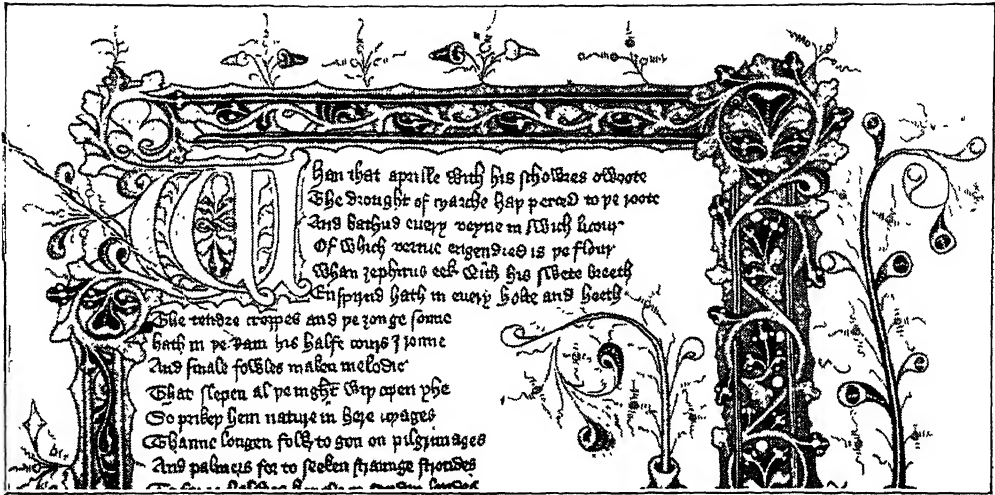 Whan that aprille with his schowres swoote
The drought of marche haþ perced to þe roote
And bathud euery veyne in swich licour
Of which vertue engendred is þe flour
Whan zephirus eek with his swete breeth
Enspirud hath in euery holte and heeth
The tendre croppes and þe ȝonge sonne
hath in þe Ram his halfe cours Ironne
And smale fowles maken melodie
That slepen al þe night wiþ open yhe
So prikeþ hem nature in here corages
Thanne longen folk to gon on pilgrimages
And palmers for to seeken straunge strondes